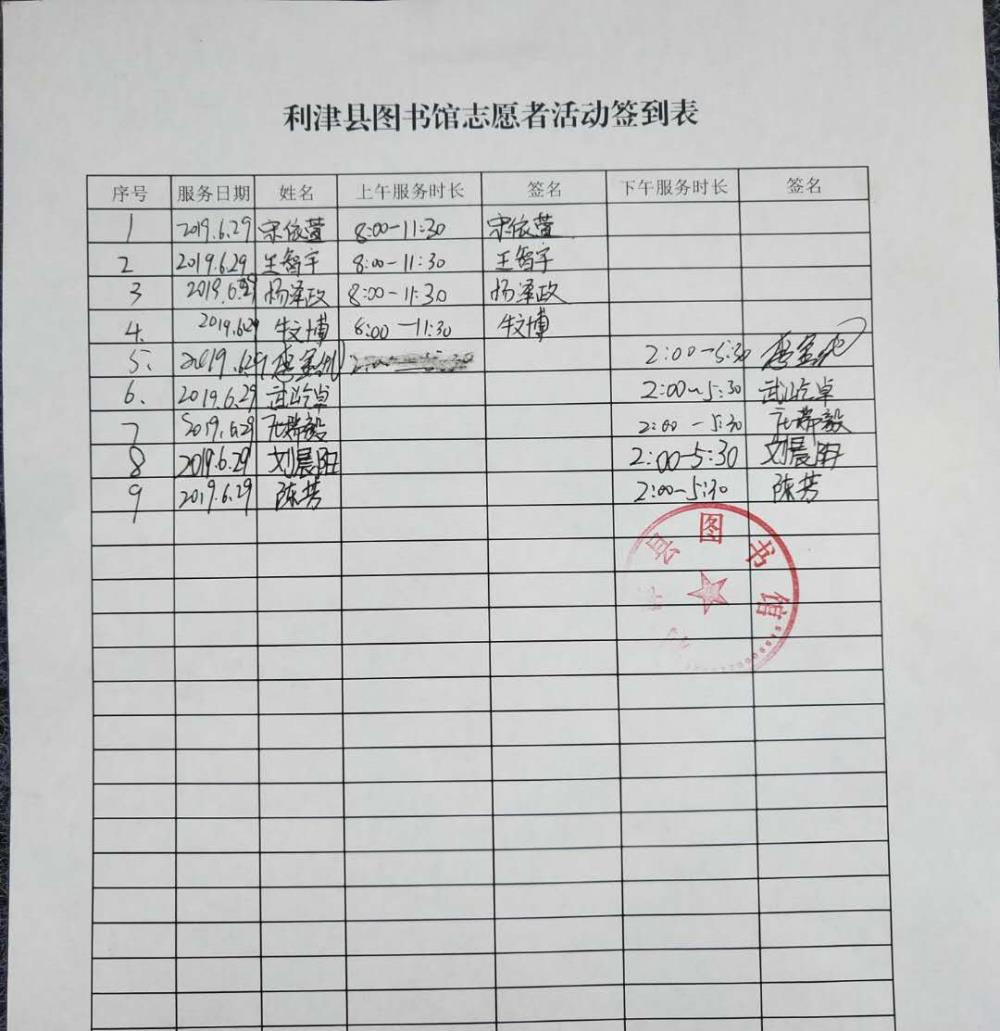 利津县图书馆志愿者活动签到表
序号 服务日期 姓名 上午服务时长 签名 下午服务时长 签名
1 2019.6.29 宋依萱 8:00-11:30 宋依萱
2 2019.6.29 王智宇 8:00-11:30 王智宇
3 2019.6.29 杨泽政 8:00-11:30 杨泽政
4. 2019.6.29 牛文博 8:00-11:30 牛文博
5. 2019.6.29 2:00-5:30
6. 2019.6.29 武屹卓 2:00-5:30 武屹卓
7 2019.6.29 2:00-5:30
8 2019.6.29 刘晨阳 2:00-5:30 刘晨阳
9 2019.6.29 陈芳 2:00-5:30 陈芳
县图书馆